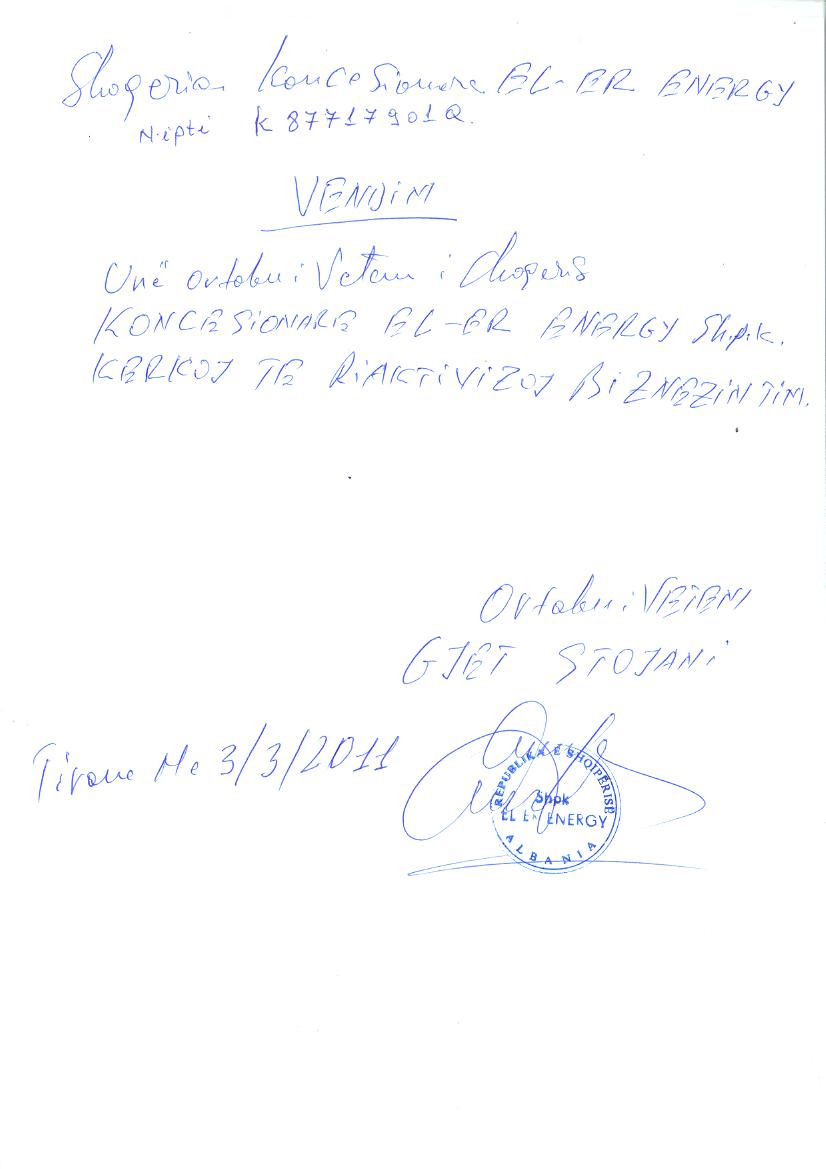 Shoqeria Koncesionare EL-ER ENERGY
Nipti K 87717901Q.
VENDIM
Unë ortaku i Vetem i Shoqeris
KONCESIONARE EL-ER ENERGY Sh.p.k.
KERKOJ TE RiAKTiViZOJ BiZNEZiN TiM.
Ortaku i VETEM
GJET STOJANi
Tirane Me 3/3/2011
REPUBLIKA E SHQIPËRISË
Shpk
EL ER ENERGY
ALBANIA